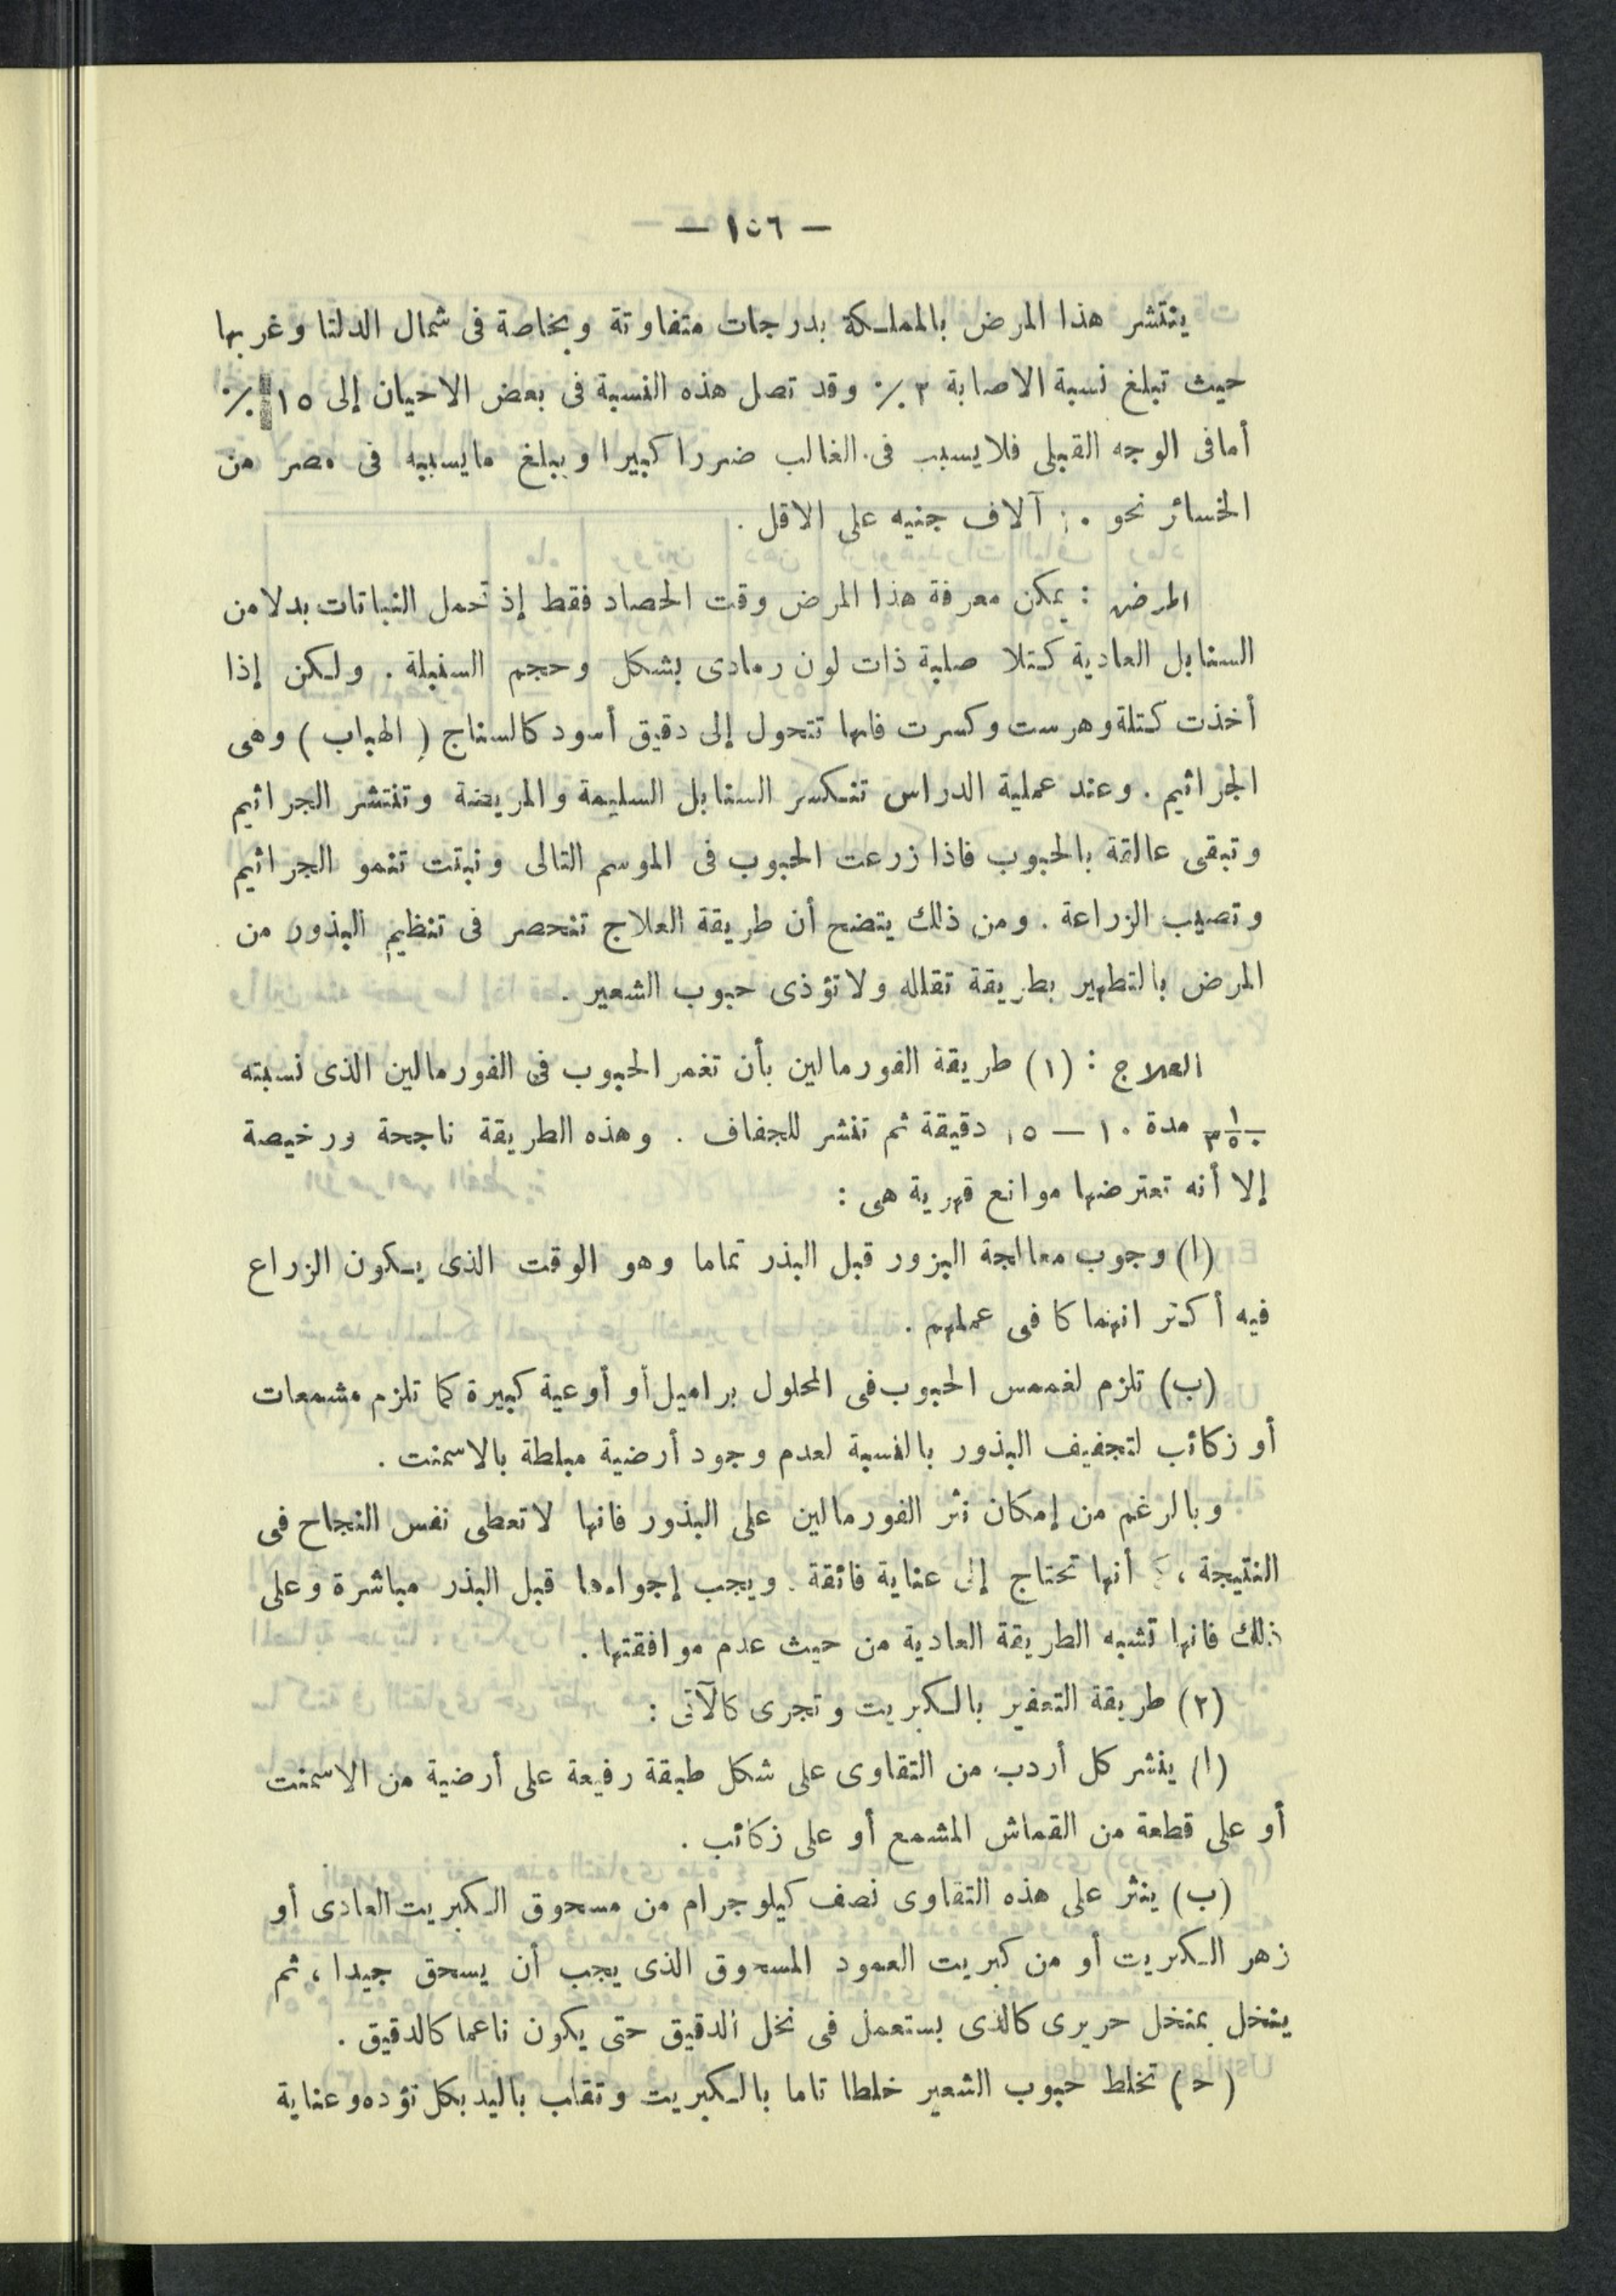 — ١٥٦ —
ينتشر هذا المرض بالمملكة بدرجات متفاوتة وبخاصة فى شمال الدلتا وغربها
حيث تبلغ نسبة الاصابة ٣ ٪ وقد تصل هذه النسبة فى بعض الاحيان إلى ١٥ ٪
أما فى الوجه القبلى فلا يسبب فى الغالب ضررا كبيرا ويبلغ ما يسببه فى مصر من
الخسائر نحو آلاف جنيه على الاقل .
المرض : يمكن معرفة هذا المرض وقت الحصاد فقط إذ تحمل النباتات بدلا من
السنابل العادية كتلا صلبة ذات لون رمادى بشكل وحجم السنبلة . ولكن إذا
أخذت كتلة وهرست وكسرت فانها تتحول إلى دقيق أسود كالسناج ( الهباب ) وهى
الجراثيم . وعند عملية الدراس تنكسر السنابل السليمة والمريضة وتنتشر الجراثيم
وتبقى عالقة بالحبوب فاذا زرعت الحبوب فى الموسم التالى ونبتت تنمو الجراثيم
وتصيب الزراعة . ومن ذلك يتضح أن طريقة العلاج تنحصر فى تنظيم البذور من
المرض بالتطهير بطريقة تقتله ولا تؤذى حبوب الشعير .
العلاج : (١) طريقة الفورمالين بأن تغمر الحبوب فى الفورمالين الذى نسبته
١/٣٥٠ مدة ١٠ — ١٥ دقيقة ثم تنشر للجفاف . وهذه الطريقة ناجحة ورخيصة
إلا أنه تعترضها موانع قهرية هى :
(ا) وجوب معالجة البزور قبل البذر تماما وهو الوقت الذى يكون الزراع
فيه أكثر انهماكا فى عملهم .
(ب) تلزم لغمس الحبوب فى المحلول براميل أو أوعية كبيرة كما تلزم مشمعات
أو زكائب لتجفيف البذور بالنسبة لعدم وجود أرضية مبلطة بالاسمنت .
وبالرغم من إمكان نثر الفورمالين على البذور فانها لا تعطى نفس النجاح فى
النتيجة ، أنها تحتاج إلى عناية فائقة . ويجب إجراءها قبل البذر مباشرة وعلى
ذلك فانها تشبه الطريقة العادية من حيث عدم موافقتها .
(٢) طريقة التعفير بالكبريت وتجرى كالآتى :
(ا) ينشر كل أردب من التقاوى على شكل طبقة رفيعة على أرضية من الاسمنت
أو على قطعة من القماش المشمع أو على زكائب .
(ب) ينثر على هذه التقاوى نصف كيلوجرام من مسحوق الكبريت العادى أو
زهر الكبريت أو من كبريت العمود المسحوق الذى يجب أن يسحق جيدا ، ثم
ينخل بمنخل حريرى كالذى يستعمل فى نخل الدقيق حتى يكون ناعما كالدقيق .
(ح) تخلط حبوب الشعير خلطا تاما بالكبريت وتقلب باليد بكل تؤده وعناية